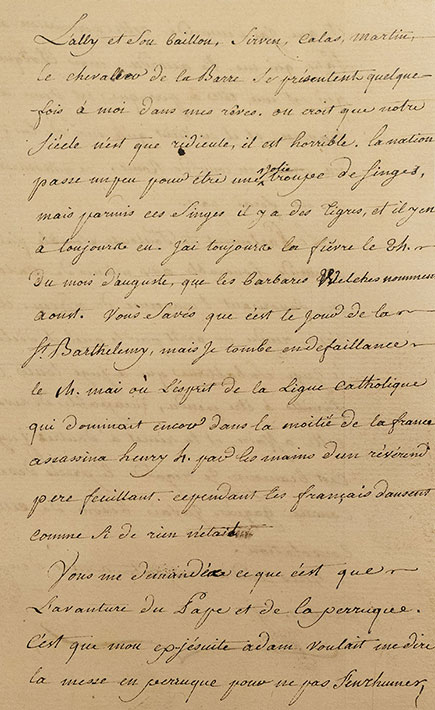 Lally et son baillon, Sirven, Calas, martin,
le chevalier de la Barre se présentent quelque
fois à moi dans mes rêves. on croit que notre
siécle n'est que ridicule, il est horrible. la nation
passe un peu pour être une jolie troupe de singes,
mais parmis ces singes il y a des tigres, et il y en
à toujours eu. J'ai toujours la fièvre le 24.
du mois d'auguste, que les barbares Welches nomment
aoust. Vous savés que c'est le jour de la
St. Barthelemy, mais je tombe en defaillance
le 14. mai où l'esprit de la Ligue Catholique
qui dominait encor dans la moitié de la france
assassina henry 4. par les mains d'un révérend
pere feuillant. cependant les français dansent
comme si de rien n'était
Vous me demandéz ce que c'est que
l'avanture du Pape et de la perruque.
C'est que mon exjésuite adam voulait me dire
la messe en perruque pour ne pas s'enrhumer,